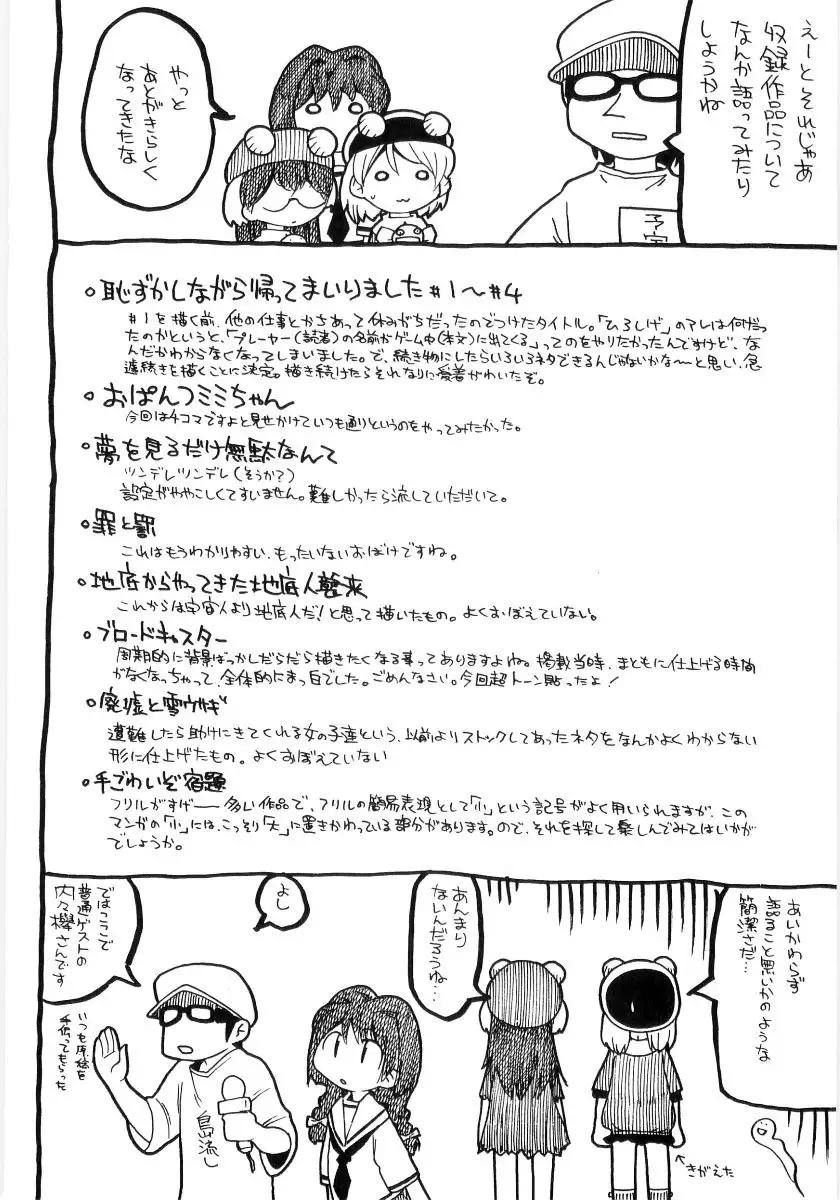 えーとそれじゃあ
収録作品について
なんか語ってみたり
しようかね
やっと
あとがきらしく
なってきたな
。恥ずかしながら帰ってまいりました#1〜#4
#1を描く前、他の仕事とかちあって休みがちだったのでつけたタイトル。「ひろしげ」のアレは何だっ
たのかというと、「プレーヤー(読者)の名前がゲーム中(本文)に出てくる」ってのをやりたかったんですけど、な
んだかわからなくなってしまいました。で、続き物にしたらいろいろネタできるんじゃないかな〜と思い、急
遽続きを描くことに決定。描き続けたらそれなりに愛着がわいたぞ。
。おぱんつミミちゃん
今回は4コマですよと見せかけていつも通りというのをやってみたかった。
。夢を見るだけ無駄なんて
ツンデレツンデレ(そうか?)
設定がややこしくてすいません。難しかったら流していただいて。
。罪と罰
これはもうわかりやすい、もったいないおばけですね。
。地底からやってきた地底人襲来
これからは宇宙人より地底人だ!と思って描いたもの。よくおぼえていない。
。ブロードキャスター
周期的に背景ばっかしだらだら描きたくなる事ってありますよね。掲載当時、まともに仕上げる時間
がなくなっちゃって、全体的にまっ白でした。ごめんなさい。今回超トーン貼ったよ!
。廃墟と雪ウサギ
遭難したら助けにきてくれる女の子達という、以前よりストックしてあったネタをなんかよくわからない
形に仕上げたもの。よくおぼえていない
。手ごわいぞ宿題
フリルがすげーー多い作品で、フリルの簡易表現として「小」という記号がよく用いられますが、この
マンガの「小」には、こっそり「大」に置きかわっている部分があります。ので、それを探して楽しんでみてはいかが
でしょうか。
あいかわらず
語ること無いかのような
簡潔さだ…
あんまり
ないんだろうね…
きがえた
よし
ではここで
普通ゲストの
内々欅さんです
いつも原稿を
手伝ってもらった
島流し